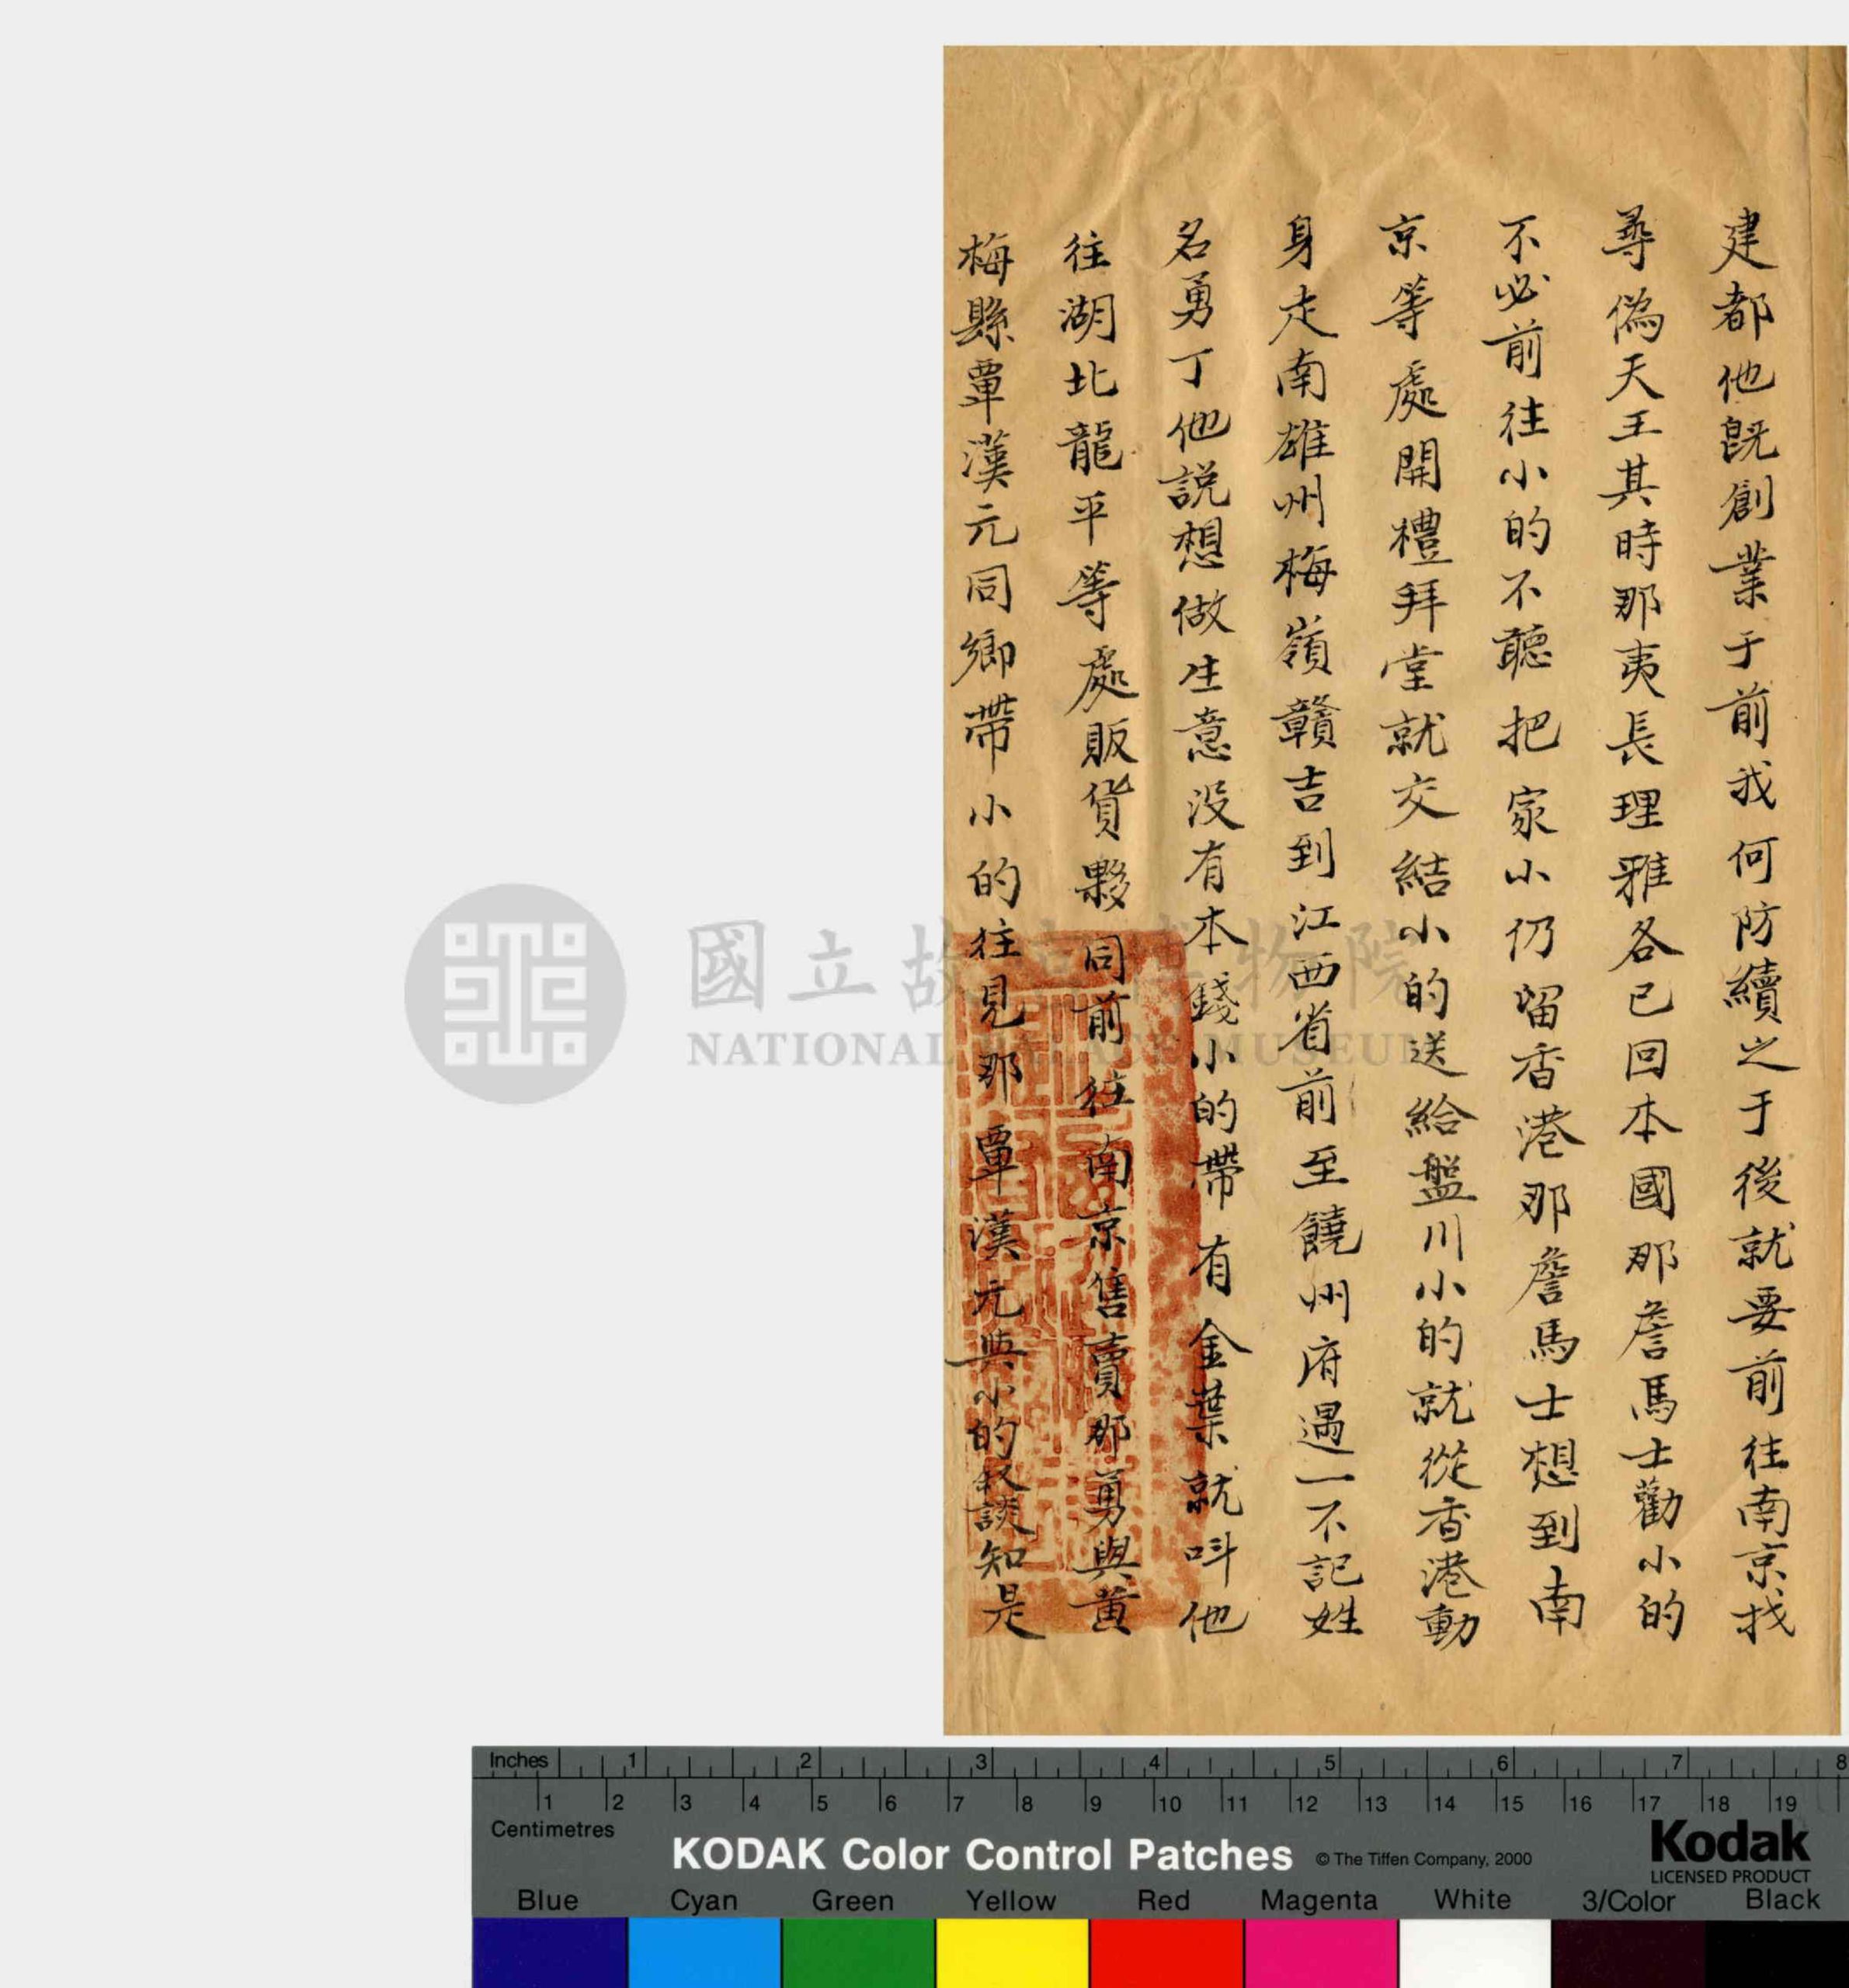 建都他既創業于前我何防續之于後就要前往南京找
尋偽天王其時那夷長理雅各已回本國那詹馬士勸小的
不必前往小的不聽把家小仍留香港那詹馬士想到南
京等處開禮拜堂就交結小的送給盤川小的就從香港動
身走南雄州梅嶺贛吉到江西省前至饒州府遇一不記姓
名勇丁他説想做生意没有本錢小的帶有金葉就呌他
往湖北龍平等處販貨夥同前往南京售賣那勇與黄
梅縣覃漢元同鄉帶小的往見那覃漢元與小的叙談知是
國立故宮博物院
NATIONAL PALACE MUSEUM
Inches 1 2 3 4 5 6 7 8
1 2 3 4 5 6 7 8 9 10 11 12 13 14 15 16 17 18 19
Centimetres
KODAK Color Control Patches © The Tiffen Company, 2000
Kodak
LICENSED PRODUCT
Blue Cyan Green Yellow Red Magenta White 3/Color Black